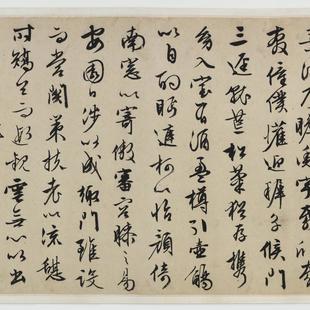 奔僮僕歡迎稚子候門
三逕就荒松菊猶存攜
幼入室有酒盈樽引壺觴
以自酌眄庭柯以怡顏倚
南窗以寄傲審容膝之易
安園日涉以成趣門雖設
而常關策扶老以流憩
時矯首而遐觀雲無心以出